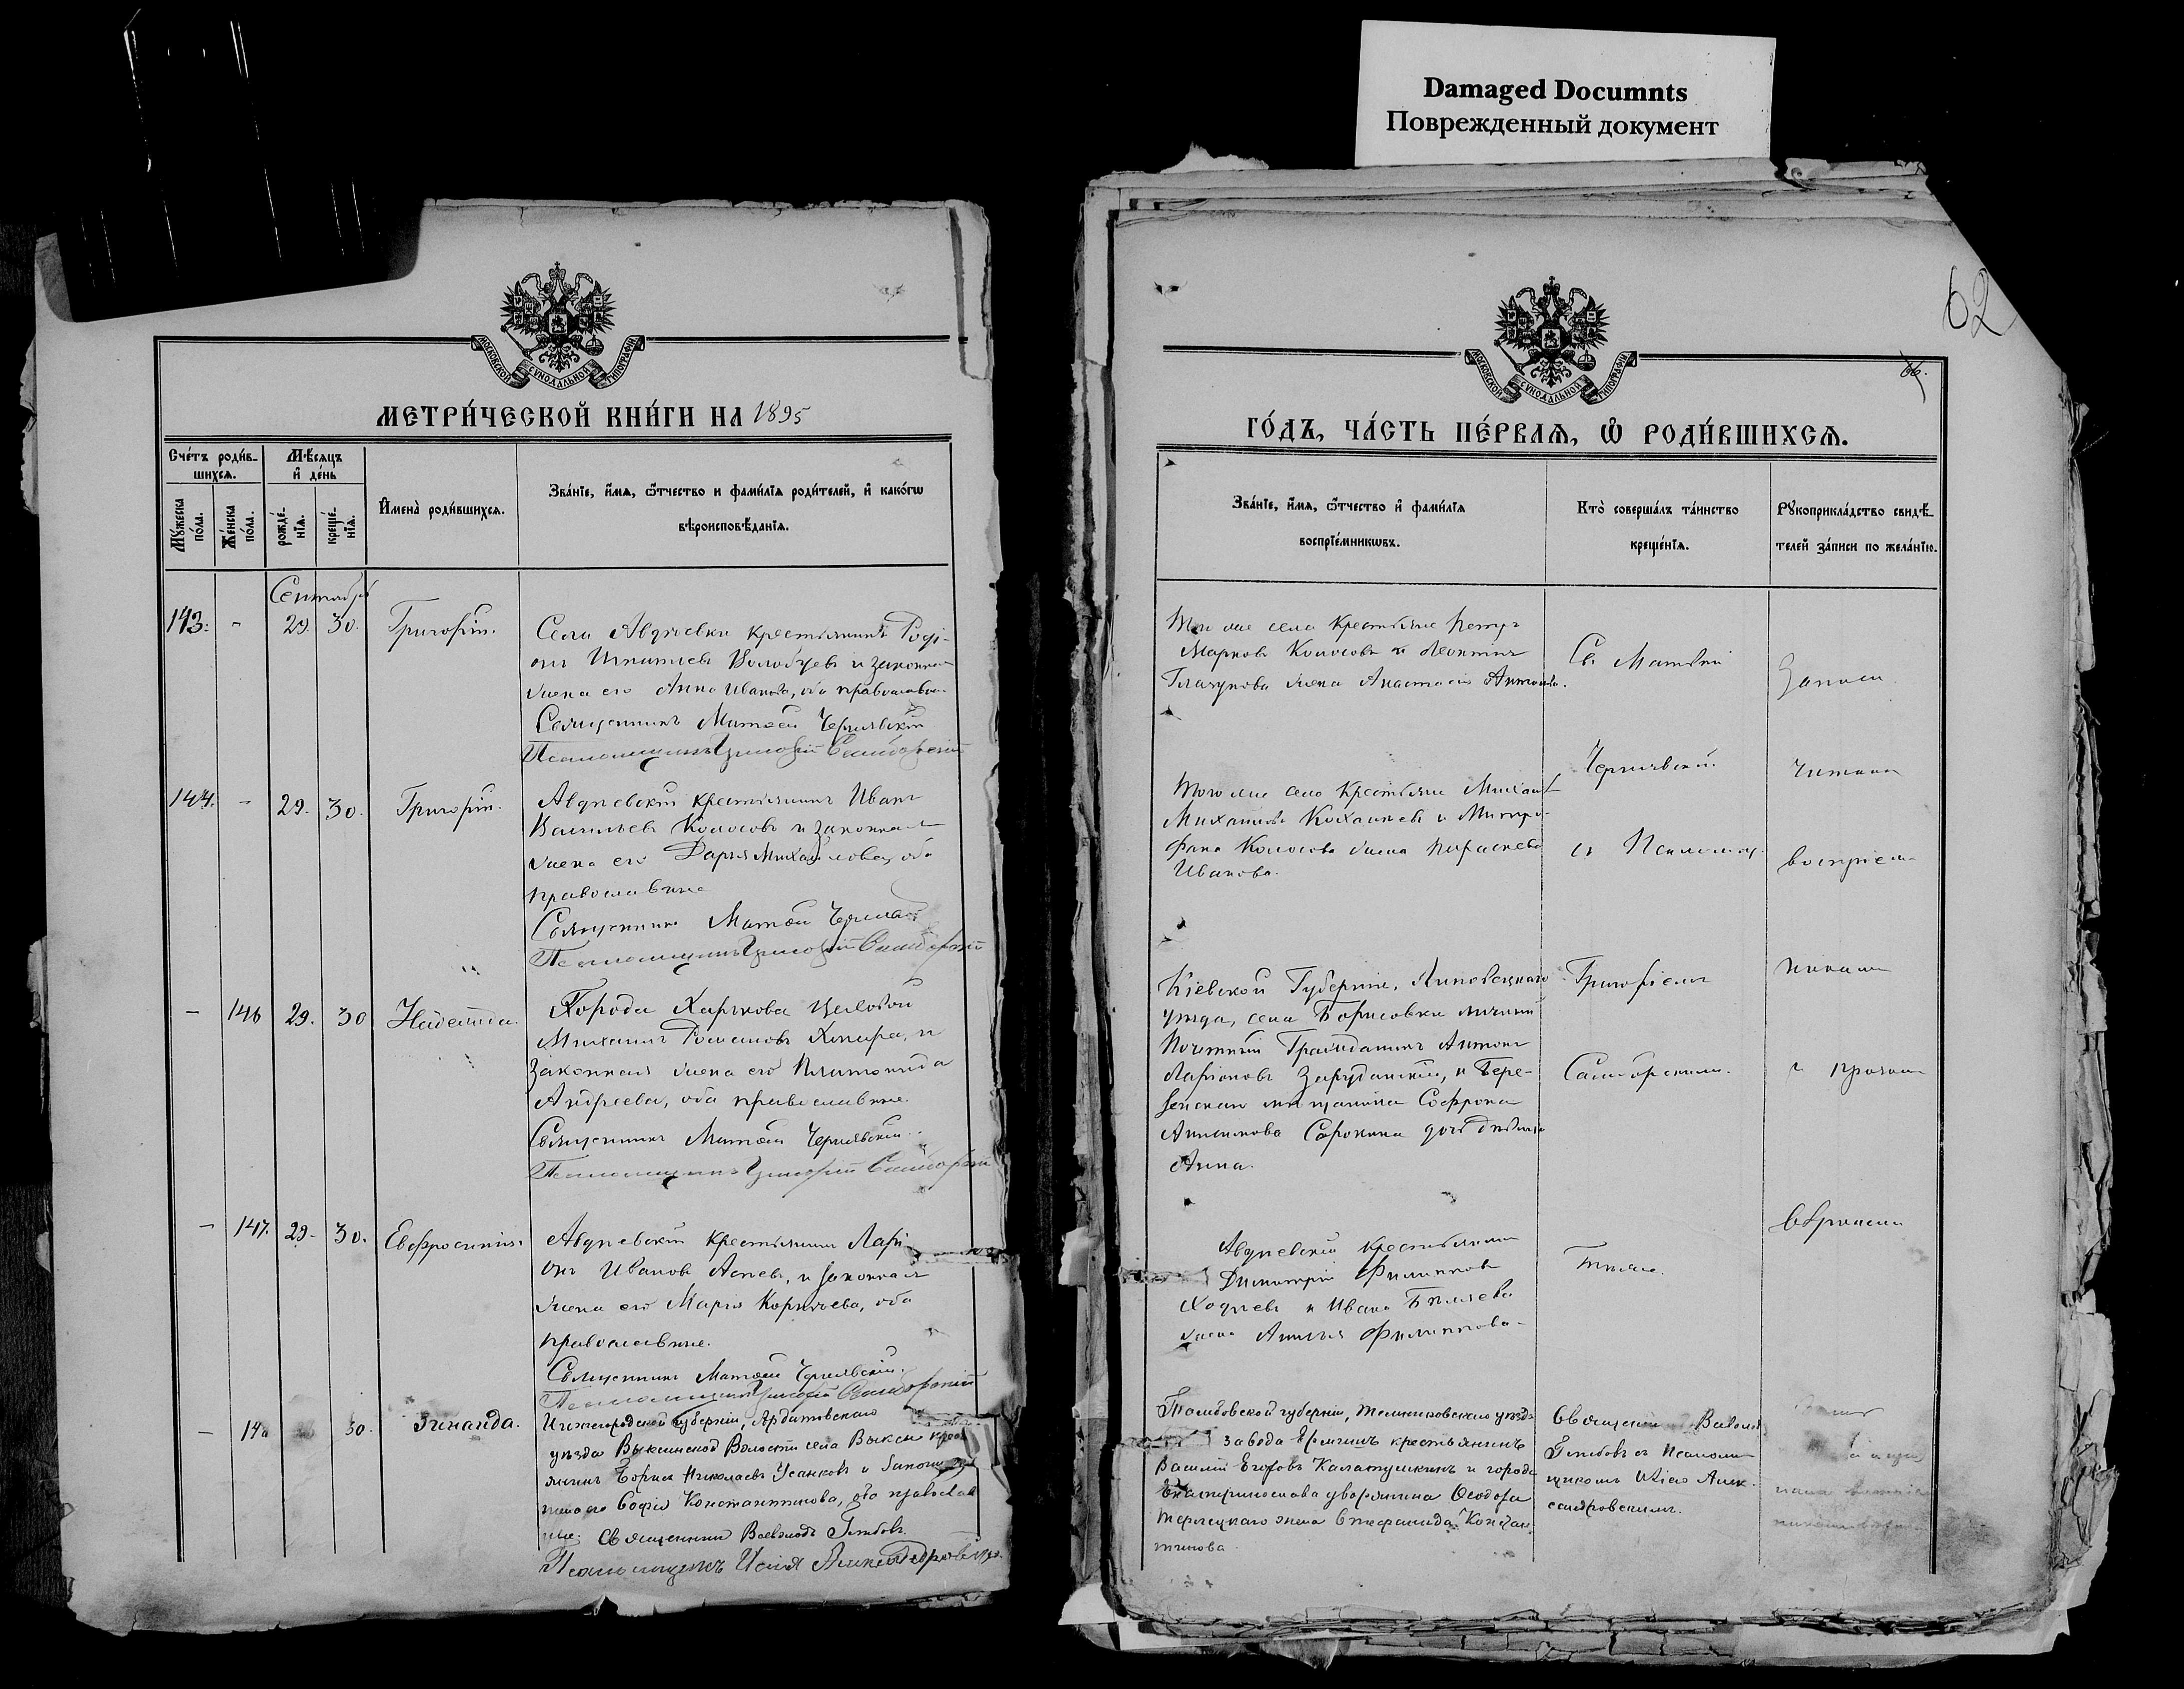 Damaged Documnts
Поврежденный документ
62
МОСКОВСКОЙ СѴНОДАЛЬНОЙ ТИПОГРАФІИ
МЕТРИ́ЧЕСКОЙ КНИ́ГИ НА 1895
Сче́тъ роди́в-
шихся.
Мѣ́сяцъ
и҆ де́нь
Мꙋ́жеска
по́ла.
Же́нска
по́ла.
рожде́-
нїѧ.
креще́-
нїѧ.
И҆мена̀ роди́вшихсѧ.
Зва́нїе, и҆́мѧ, ѻ҆́тчество и фами́лїѧ роди́телей, и҆ како́гѡ
вѣроисповѣ́данїѧ.
Сентябрь
143. - 29. 30. Григорій.
Села Авдѣевки крестьянинъ Роді-
онъ Игнатьевъ Волобуевъ и законная
жена его Анна Иванова, оба православн.
Священникъ Матѳей Чернявскій
Псаломщикъ Григорій Самборскій
144. - 29. 30. Григорій.
Авдѣевскій крестьянинъ Иванъ
Васильевъ Колосовъ и законная
жена его Дарья Михайлова, оба
православные
Священникъ Матѳей Черняв
Псаломщикъ Григорій Самборскій
- 146 29. 30 Надежда.
Города Харькова Цеховой
Михаилъ Романовъ Хмыра, и
законная жена его Платонида
Андреева, оба православные.
Священникъ Матѳей Чернявскій.
Псаломщикъ Григорій Самборскій
- 147. 29. 30. Евфросинія.
Авдѣевскій крестьянинъ Ларі-
онъ Ивановъ Асѣевъ, и законная
жена его Марія Корнѣева, оба
православные.
Священникъ Матѳей Чернявскій.
Псаломщикъ Григорій Самборскій
- 30. Зинаида.
Нижегородской губерніи, Ардатовскаго
уѣзда Выксинской Волости села Выксы крест
янинъ Борисъ Николаевъ Усанковъ и законная
жена его Софія Константинова, оба православ
ные. Священникъ Всеволодъ Глѣбовъ.
Псаломщикъ Илія Александровскій.
МОСКОВСКОЙ СѴНОДАЛЬНОЙ ТИПОГРАФІИ
ГО́ДЪ, ЧА́СТЬ ПЕ́РВАЯ, Ѡ҆ РОДИ́ВШИХСЯ.
Зва́нїе, и҆́мѧ, ѻ҆́тчество и҆ фами́лїѧ
воспрїе́мникѡвъ.
Кто̀ соверша́лъ та́инство
креще́нїѧ.
Рꙋкоприкла́дство свидѣ́-
телей за́писи по жела́нїю.
Той же села крестьяне Петръ
Марковъ Колосовъ и Леонтія
Глазунова жена Анастасія Антонова.
Св. Матѳей
Записи
Того же села крестьяне Михаилъ
Михаиловъ Коханьевъ и Митро-
фана Колосова жена Параскева
Иванова.
Чернявскій
съ Псаломщ.
читана
воспріем-
Кіевской Губерніи, Липовецкаго
уѣзда, села Борисовки личный
Почетный Гражданинъ Антонъ
Ларіоновъ Зарудинскій, и Бере-
Софрона
Анисимова Сорокина дочь дѣвица
Анна.
Григоріемъ
Самборскимъ.
никамъ
и прочимъ
Авдѣевскій крестьянинъ
Димитрій Филипповъ
Ходѣевъ и Ивана Бѣляева
жена Аѳиля Филиппова.
Тѣже.
вѣрными
Тамбовской губерніи, Темниковскаго уѣзда
завода Ермишъ крестьянинъ
Василій Егоровъ Калатушкинъ и города
Екатеринослава дворянина Ѳеодора
Терлецкаго жена Стефанида Констан-
тинова
Священникъ Всевол
Глѣбовъ съ Псалом
щикомъ Иліею Алек
сандровскимъ.